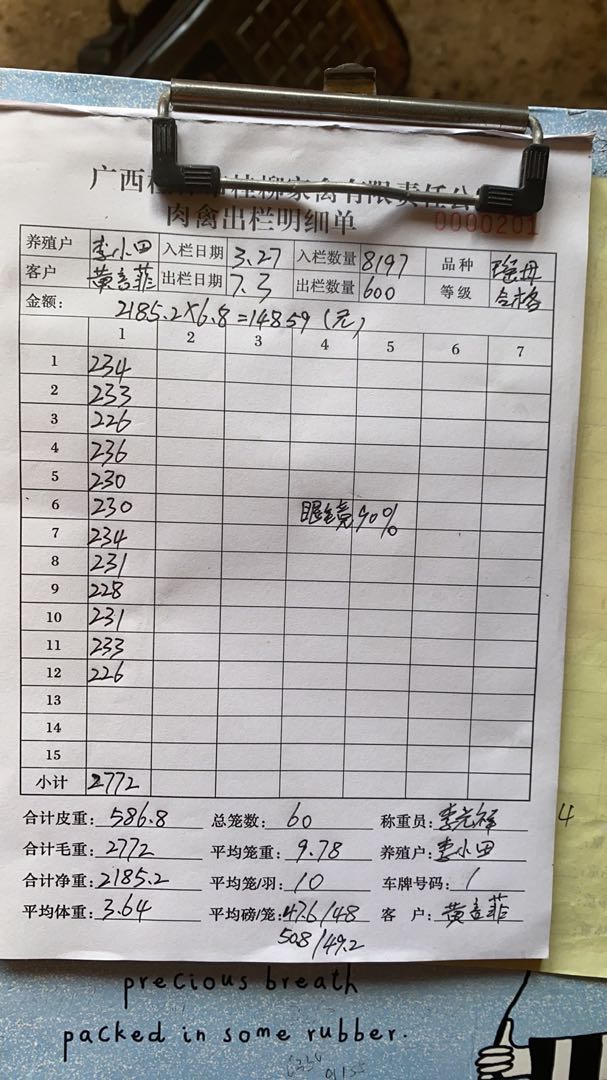 广西桂柳家禽有限责任公
肉禽出栏明细单
0000201
养殖户 李小田 入栏日期 3.27 入栏数量 8197 品种 瑶母
客户 黄彦菲 出栏日期 7.3 出栏数量 600 等级 合格
金额: 2185.2×6.8=14859(元)
1 2 3 4 5 6 7
1 234
2 233
3 226
4 236
5 230
6 230 眼镜90%
7 234
8 231
9 228
10 231
11 233
12 226
13
14
15
小计 2772
合计皮重: 586.8 总笼数: 60 称重员: 李光祥
合计毛重: 2772 平均笼重: 9.78 养殖户: 李小田
合计净重: 2185.2 平均笼/羽: 10 车牌号码: /
平均体重: 3.64 平均磅/笼: 47.6/48 客 户: 黄彦菲
50.8/49.2
4
precious breath
packed in some rubber.